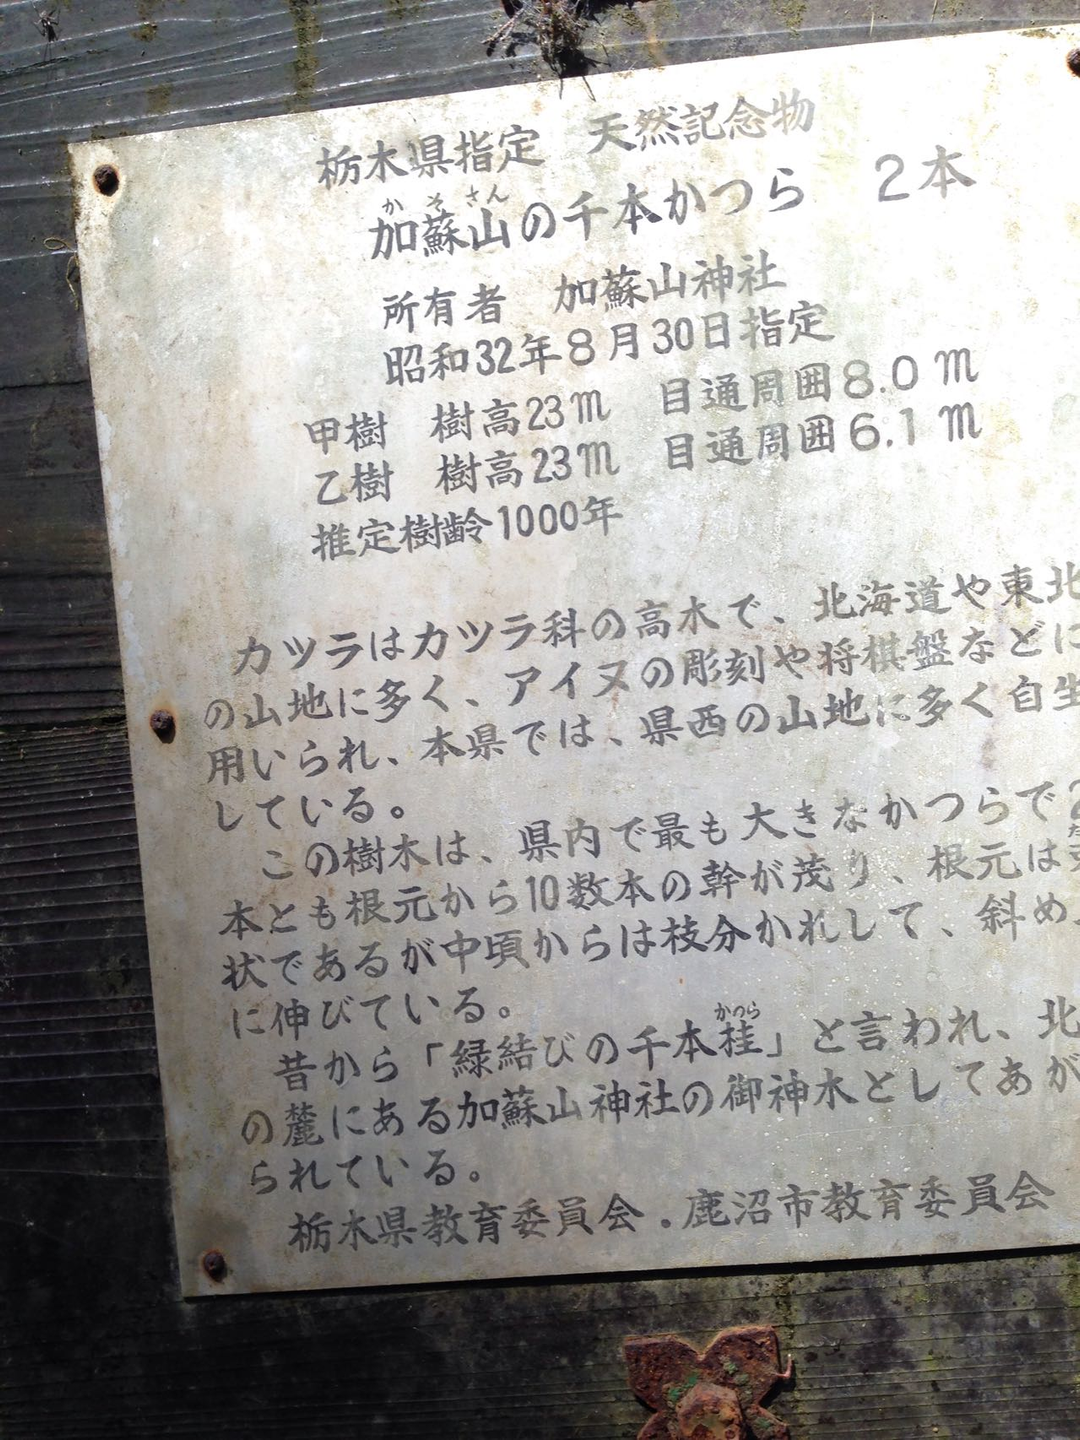 栃木県指定　天然記念物
かそさん
加蘇山の千本かつら　2本
所有者　加蘇山神社
昭和32年8月30日指定
甲樹　樹高23m　目通周囲8.0m
乙樹　樹高23m　目通周囲6.1m
推定樹齢1000年
カツラはカツラ科の高木で、北海道や東北
の山地に多く、アイヌの彫刻や将棋盤などに
用いられ、本県では、県西の山地に多く自生
している。
この樹木は、県内で最も大きなかつらで2
本とも根元から10数本の幹が茂り、根元は
状であるが中頃からは枝分かれして、斜め
に伸びている。
かつら
昔から「緑結びの千本桂」と言われ、北
の麓にある加蘇山神社の御神木としてあが
られている。
栃木県教育委員会・鹿沼市教育委員会